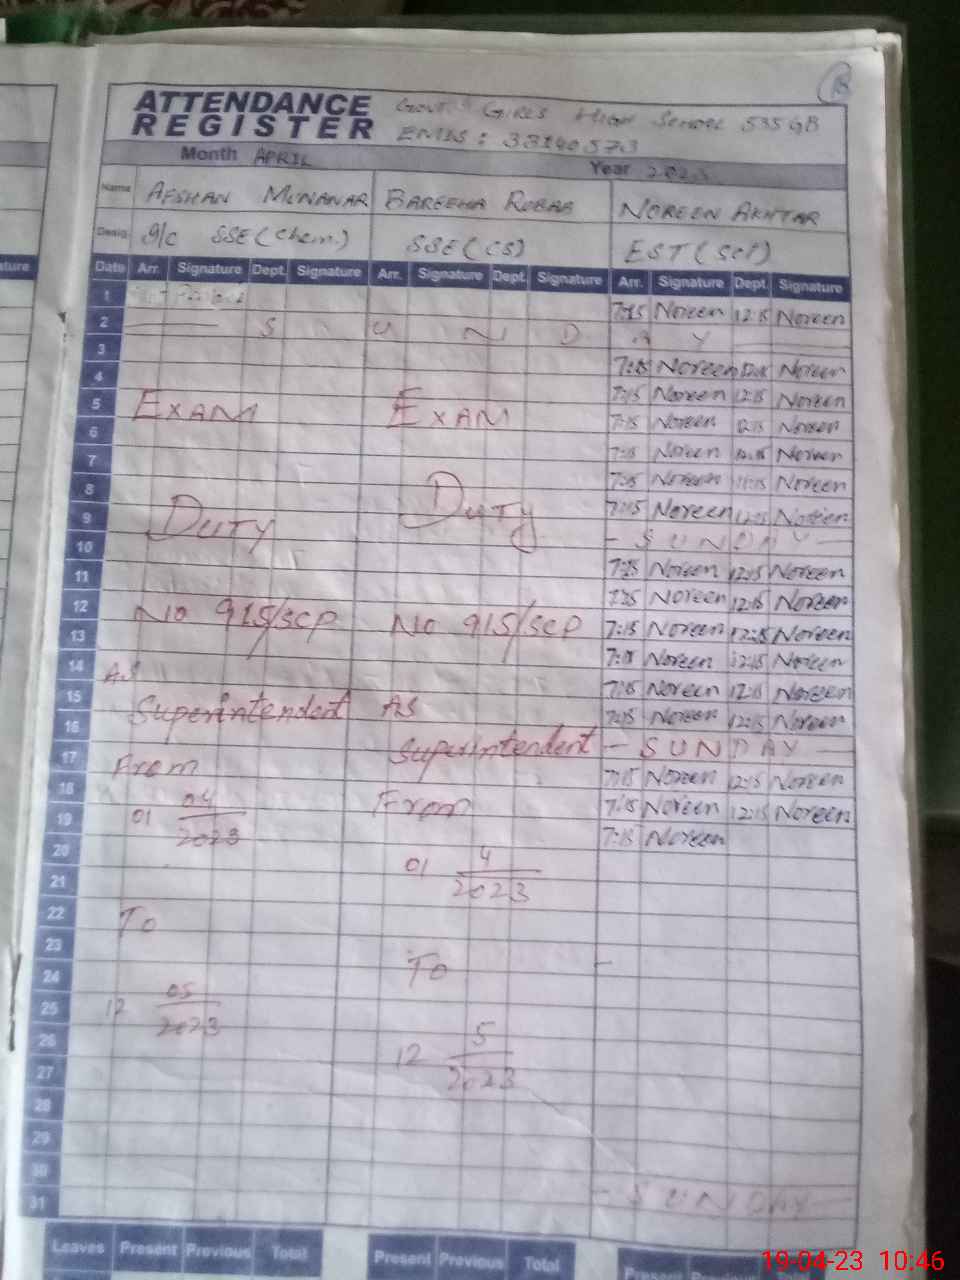 ATTENDANCE
REGISTER
GOVT GIRLS HIGH SCHOOL 535 GB
EMIS : 33140573
Month APRIL Year 2023
Name AFSHAN MUNAWAR BAREEHA RUBAB NOREEN AKHTAR
Desig. I/C SSE (Chem.) SSE (CS) EST (Sci)
Date Arr. Signature Dept. Signature Arr. Signature Dept. Signature Arr. Signature Dept. Signature
1 7:15 Noreen 12:15 Noreen
2 S U N D A Y
3 7:15 Noreen Noreen
4 7:15 Noreen 12:15 Noreen
5 EXAM EXAM 7:15 Noreen 12:15 Noreen
6 Noreen 12:15 Noreen
7 7:15 Noreen 11:15 Noreen
8 DUTY DUTY 7:15 Noreen 12:15 Noreen
9 - SUNDAY -
10 7:15 Noreen 12:15 Noreen
11 7:15 Noreen 12:15 Noreen
12 No 915/SCP No 915/SCP 7:15 Noreen 12:15 Noreen
13 7:15 Noreen 12:15 Noreen
14 As 7:15 Noreen 12:15 Noreen
15 Superintendent As 7:15 Noreen 12:15 Noreen
16 Superintendent - SUNDAY -
17 From 7:15 Noreen 12:15 Noreen
18 From 7:15 Noreen 12:15 Noreen
19 01 04/2023 7:15 Noreen
20 01 4/2023
21
22 To
23
24 To
25 12 05/2023
26
27 12 5/2023
28
29
30 - SUNDAY -
31
Leaves Present Previous Total Present Previous Total Present Previous
19-04-23 10:46